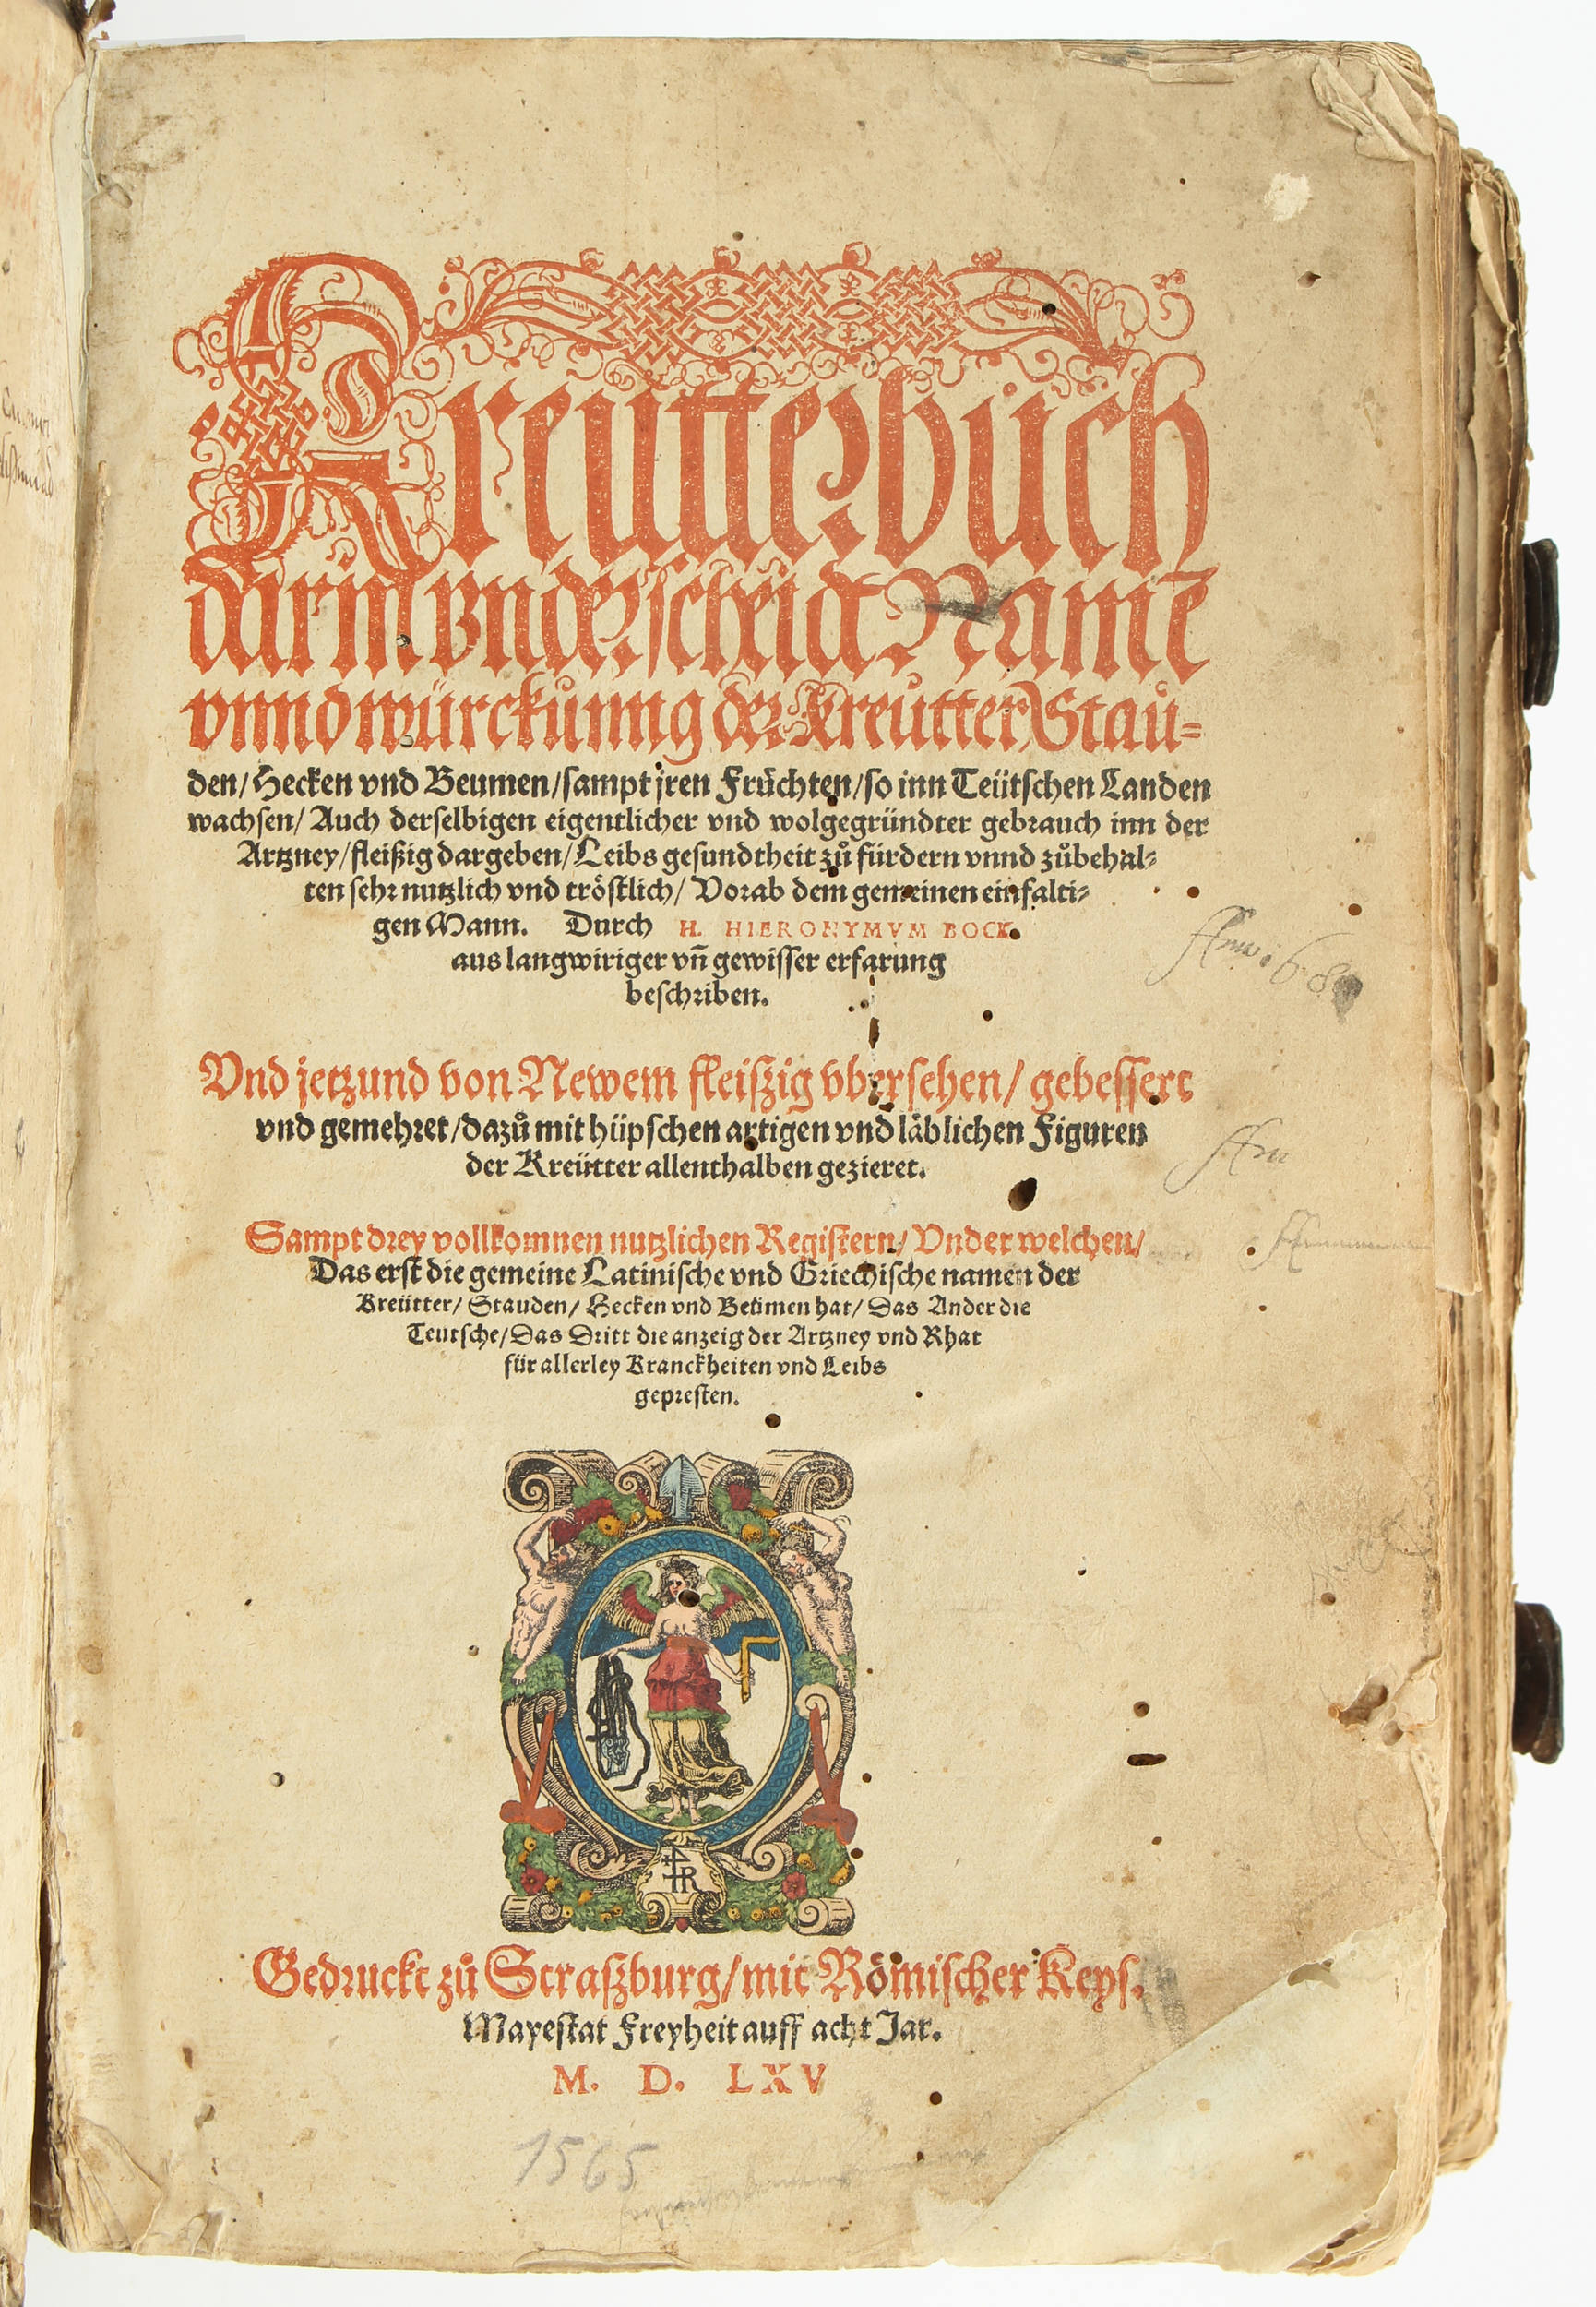 Kreütterbuͦch
darin̄ vnderscheidt Namē
vnnd würckunng der Kreutter / Stau=
den / Hecken vnd Beumen / sampt jren Früchten / so inn Teütschen Landen
wachsen / Auch derselbigen eigentlicher vnd wolgegründter gebrauch inn der
Artzney / fleißig dargeben / Leibs gesundtheit zuͦ fürdern vnnd zuͦbehal=
ten sehr nutzlich vnd tröstlich / Vorab dem gemeinen einfalti=
gen Mann. Durch H. HIERONYMVM BOCK
aus langwiriger vn̄ gewisser erfarung
beschriben.
Vnd jetzund von Newem fleißig vbersehen / gebessert
vnd gemehret / dazuͦ mit hüpschen artigen vnd läblichen Figuren
der Kreütter allenthalben gezieret.
Sampt drey vollkomnen nutzlichen Registern / Vnder welchen /
Das erst die gemeine Latinische vnd Griechische namen der
Kreütter / Stauden / Hecken vnd Beümen hat / Das Ander die
Teutsche / Das Dritt die anzeig der Artzney vnd Rhat
für allerley Kranckheiten vnd Leibs
gepresten.
R
Gedruckt zuͦ Straßburg / mit Römischer Keys.
Mayestat Freyheit auff acht Jar.
M. D. LXV
1565